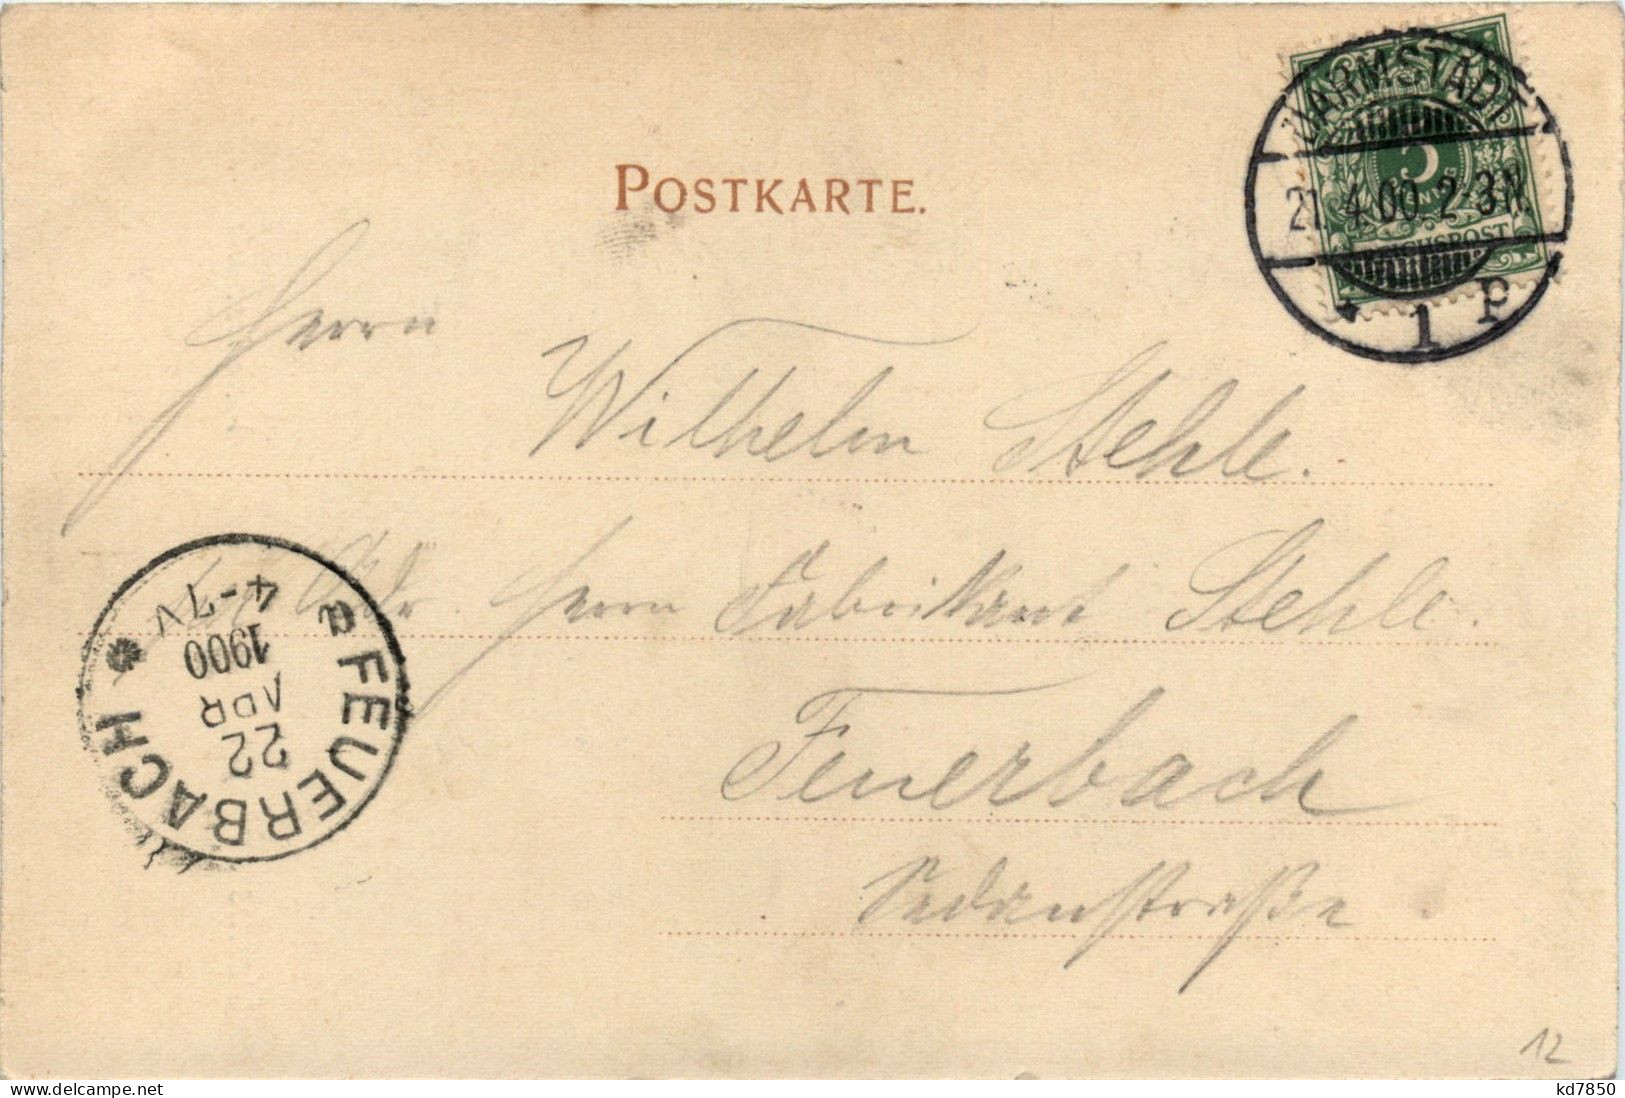 POSTKARTE.
DARMSTADT
5
21.4.00.2-3N.
REICHSPOST
* 1 P
Herrn
Wilhelm Stehle.
Adr. Herrn Fabrikant Stehle.
Feuerbach
Sedanstraße.
FEUERBACH
22
APR
1900
4-7V
12
www.delcampe.net
kd7850